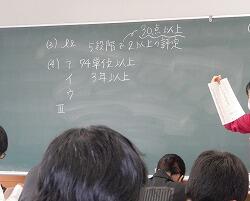 30点以上
(3) 5段階で2以上の評定
(4) ア 74単位以上
イ 3年以上
ウ
Ⅲ